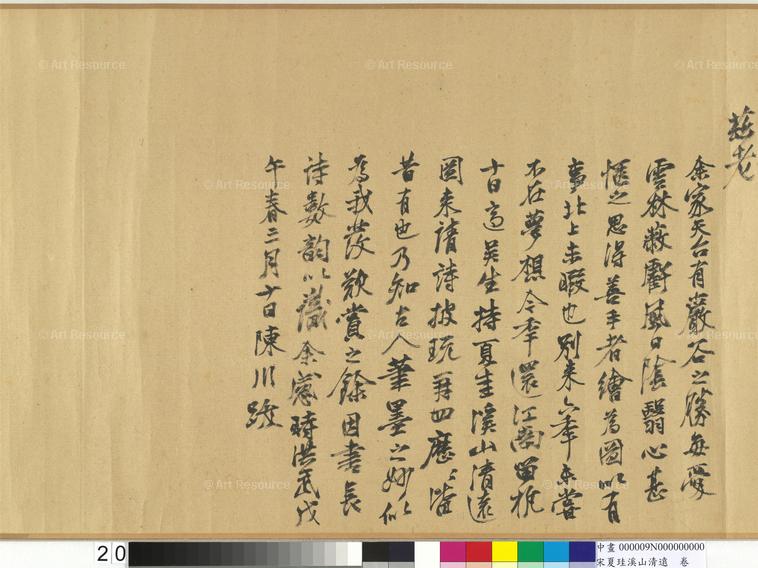 老
余家天台有巖谷之勝每愛
雲林蔽虧風日陰翳心甚
愜之思得善手者繪為圖以有
事北上未暇也別來六年未嘗
不在夢想今年還江南留杭
十日適吳生持夏圭溪山清遠
圖來請詩披玩再四歷〻皆
昔有也乃知古人筆墨之妙似
為我發歎賞之餘因書長
詩數韻以識余感時洪武戊
午春三月十日陳川跋
© Art Resource
© Art Resource
© Art Resource
© Art Resource
© Art Resource
© Art Resource
© Art Resource
© Art Resource
© Art Resource
© Art Resource
© Art Resource
© Art Resource
20
中畫 000009N000000000
宋夏珪溪山清遠 卷